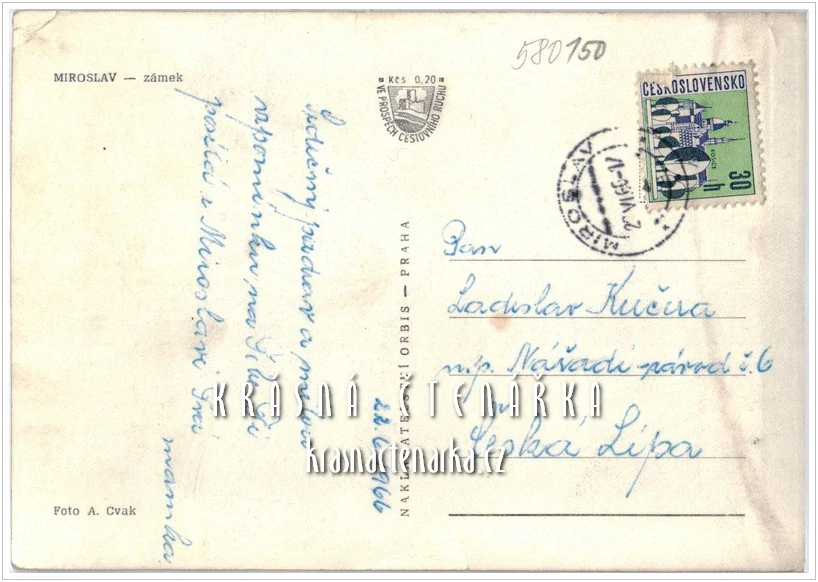 580150
MIROSLAV — zámek
Kčs 0,20
VE PROSPĚCH CESTOVNÍHO RUCHU
ČESKOSLOVENSKO
30 h
MIROSLAV
Srdečný pozdrav a
na
posílá z Miroslavi Tvá
mamka.
22.6.1966
NAKLADATELSTVÍ ORBIS — PRAHA
Pan
Ladislav Kučera
n.p. Nářadí-závod č.6
Česká Lípa
KRÁSNÁ ČTENÁŘKA
krasnactenarka.cz
Foto A. Cvak